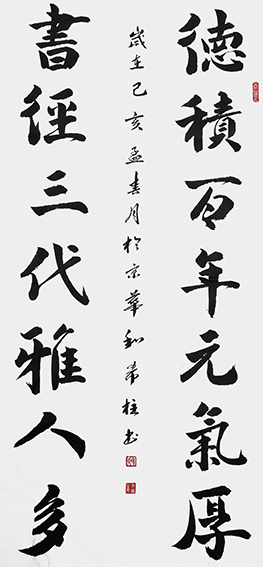 德積百年元氣厚
書徑三代雅人多
歲在己亥孟春月於京華劉希柱書